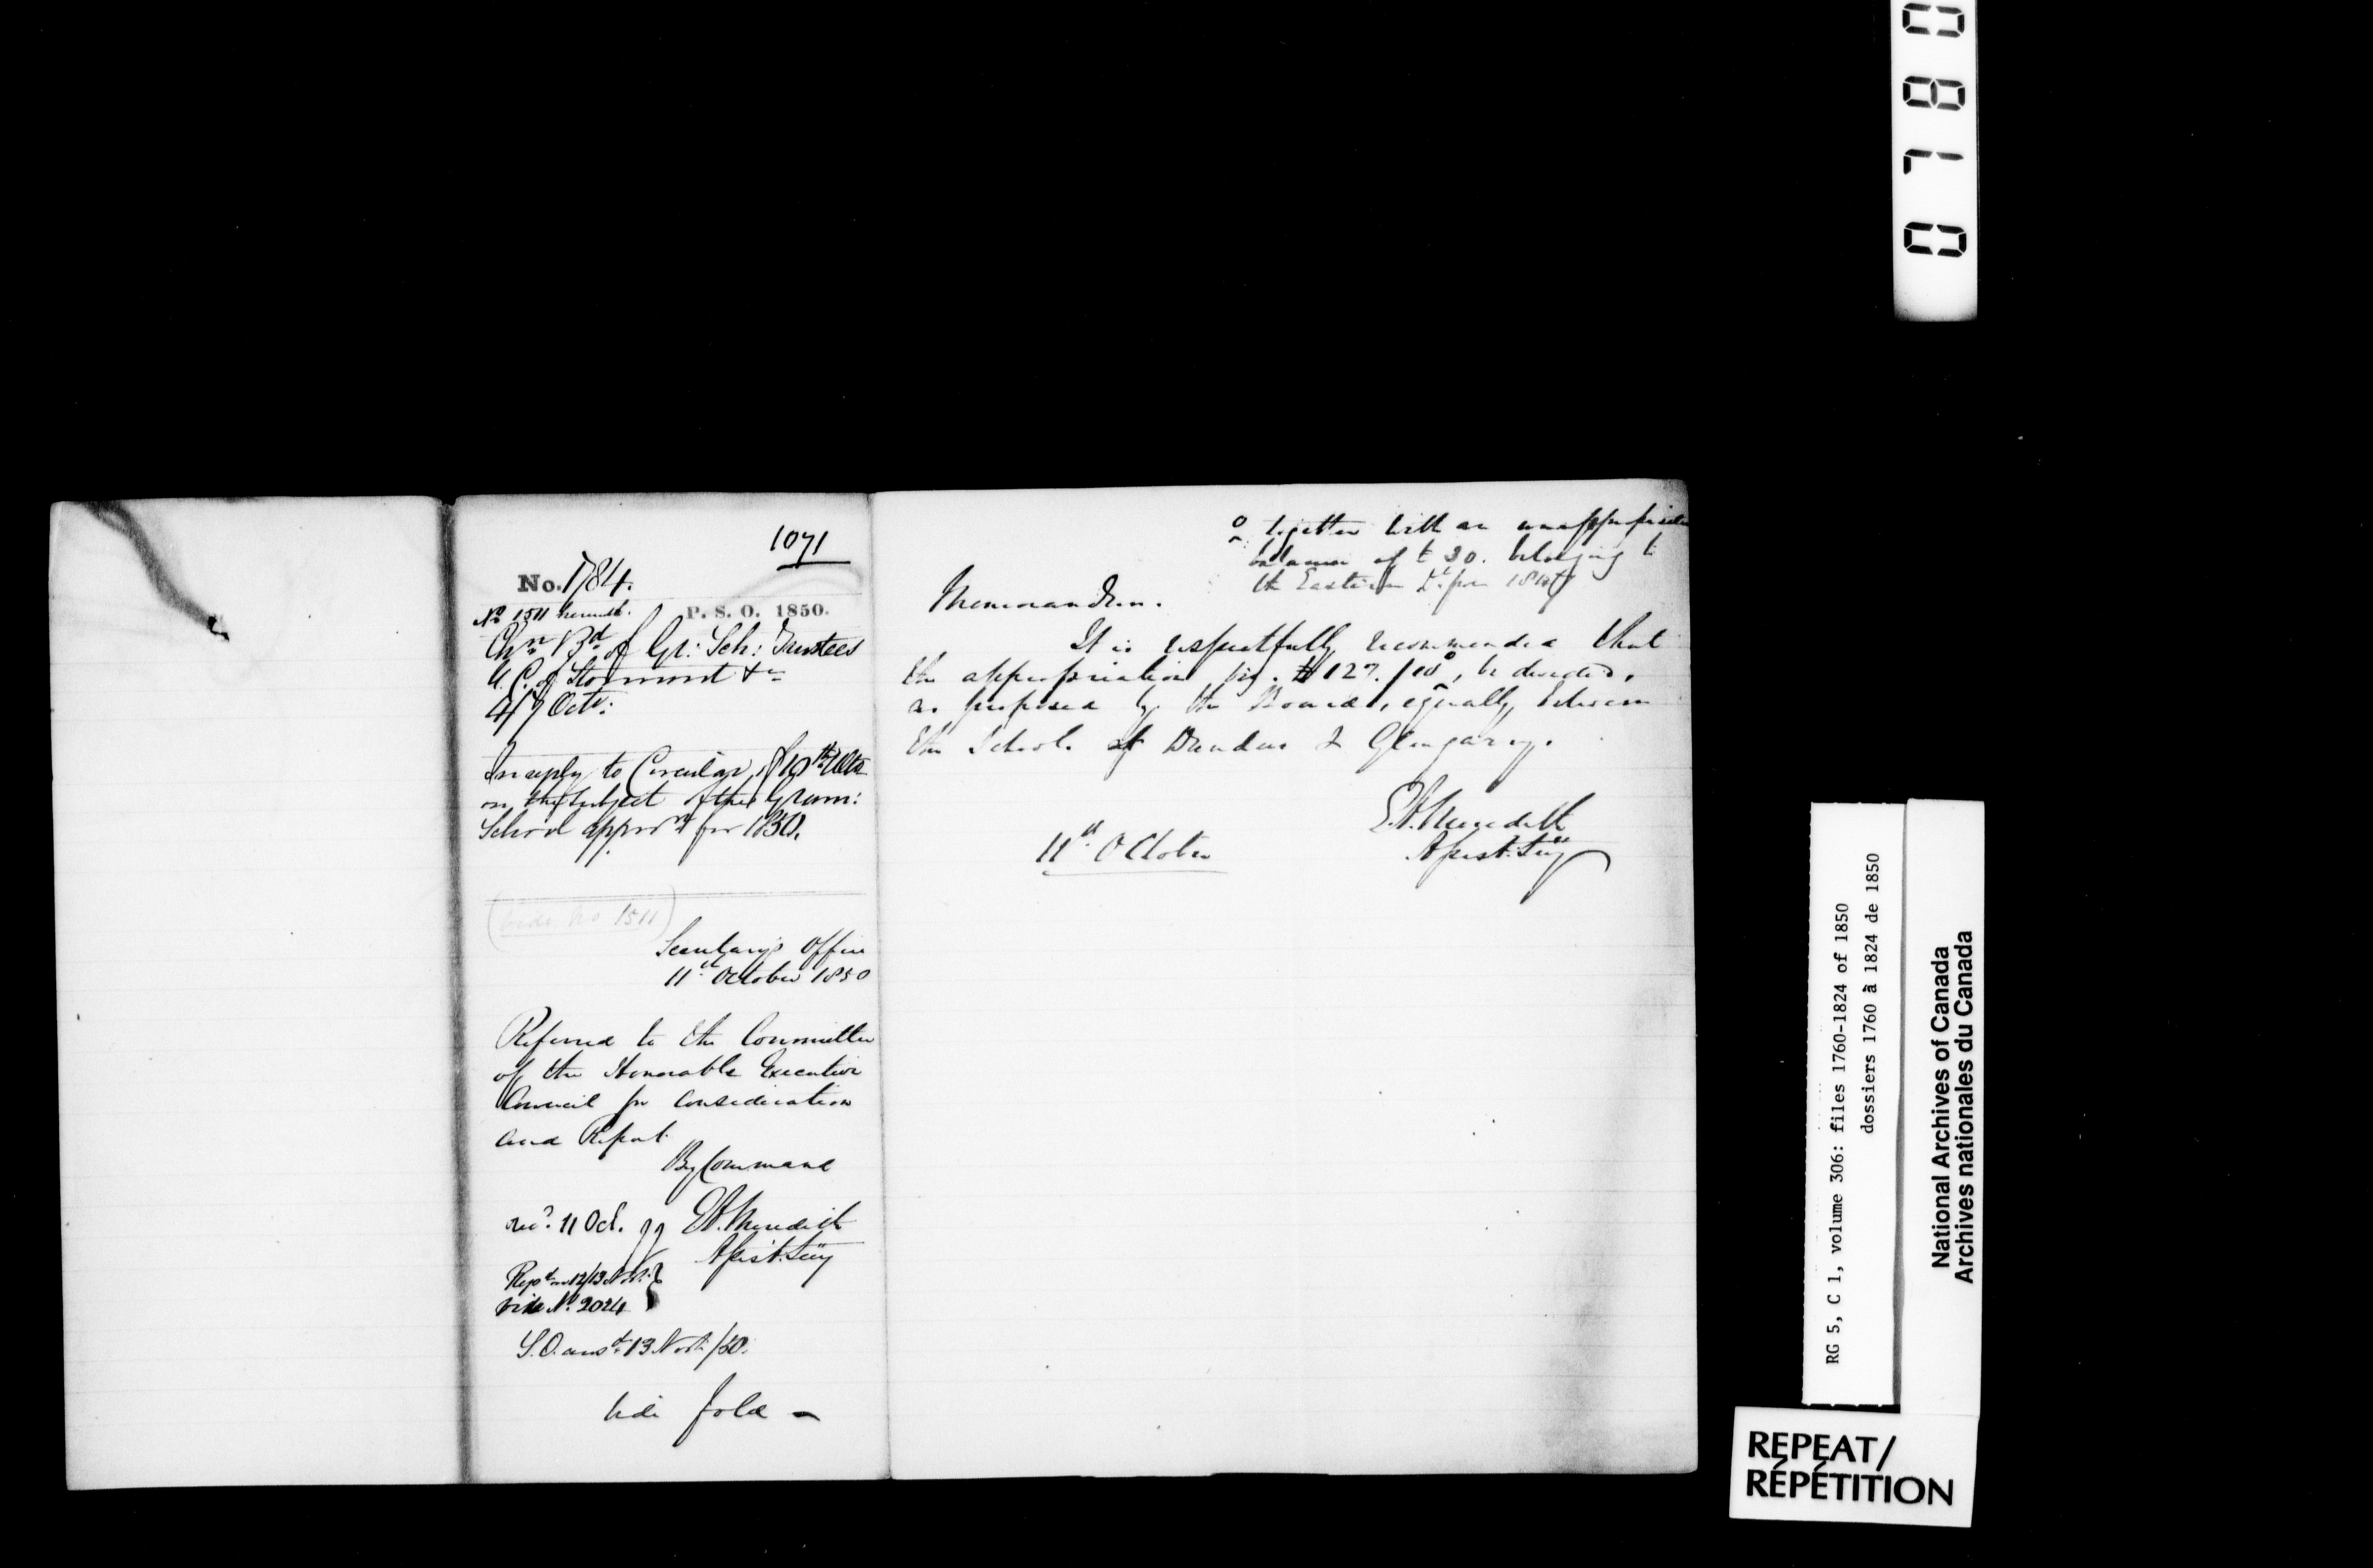 1071
No. 1784.
No 1511 herewith.
P. S. O. 1850.
Chn. Bd of Gr: Sch: Trustees
U. C. of Stormont &c
4/7 Octr:
In reply to Circular of 10th Ulto
on the Subject of the Gram:
School appron for 1850.
(vide No 1511)
Secretary's Office
11th October 1850
Referred to the Committee
of the Honorable Executive
Council for Consideration
and Report
By Command
E.A. Meredith
Assist. Secy
rec'd. 11 Oct.
Repd on 12/13 Nov.
vide No. 2024
S.O. ansd. 13 Novr /50.
vide fold —
together with an unappropriated
balance of £ 30. belonging to
the Eastern Dt. from 1849
Memorandum.
It is respectfully recommended that
the appropriation viz. £127. /10, be divided,
as proposed by the Board, equally between
the Schools of Dundas & Glengary.
E.A. Meredith
Assist. Secy
11th October
0780
RG 5, C 1, volume 306: files 1760-1824 of 1850
dossiers 1760 à 1824 de 1850
National Archives of Canada
Archives nationales du Canada
REPEAT/
RÉPÉTITION